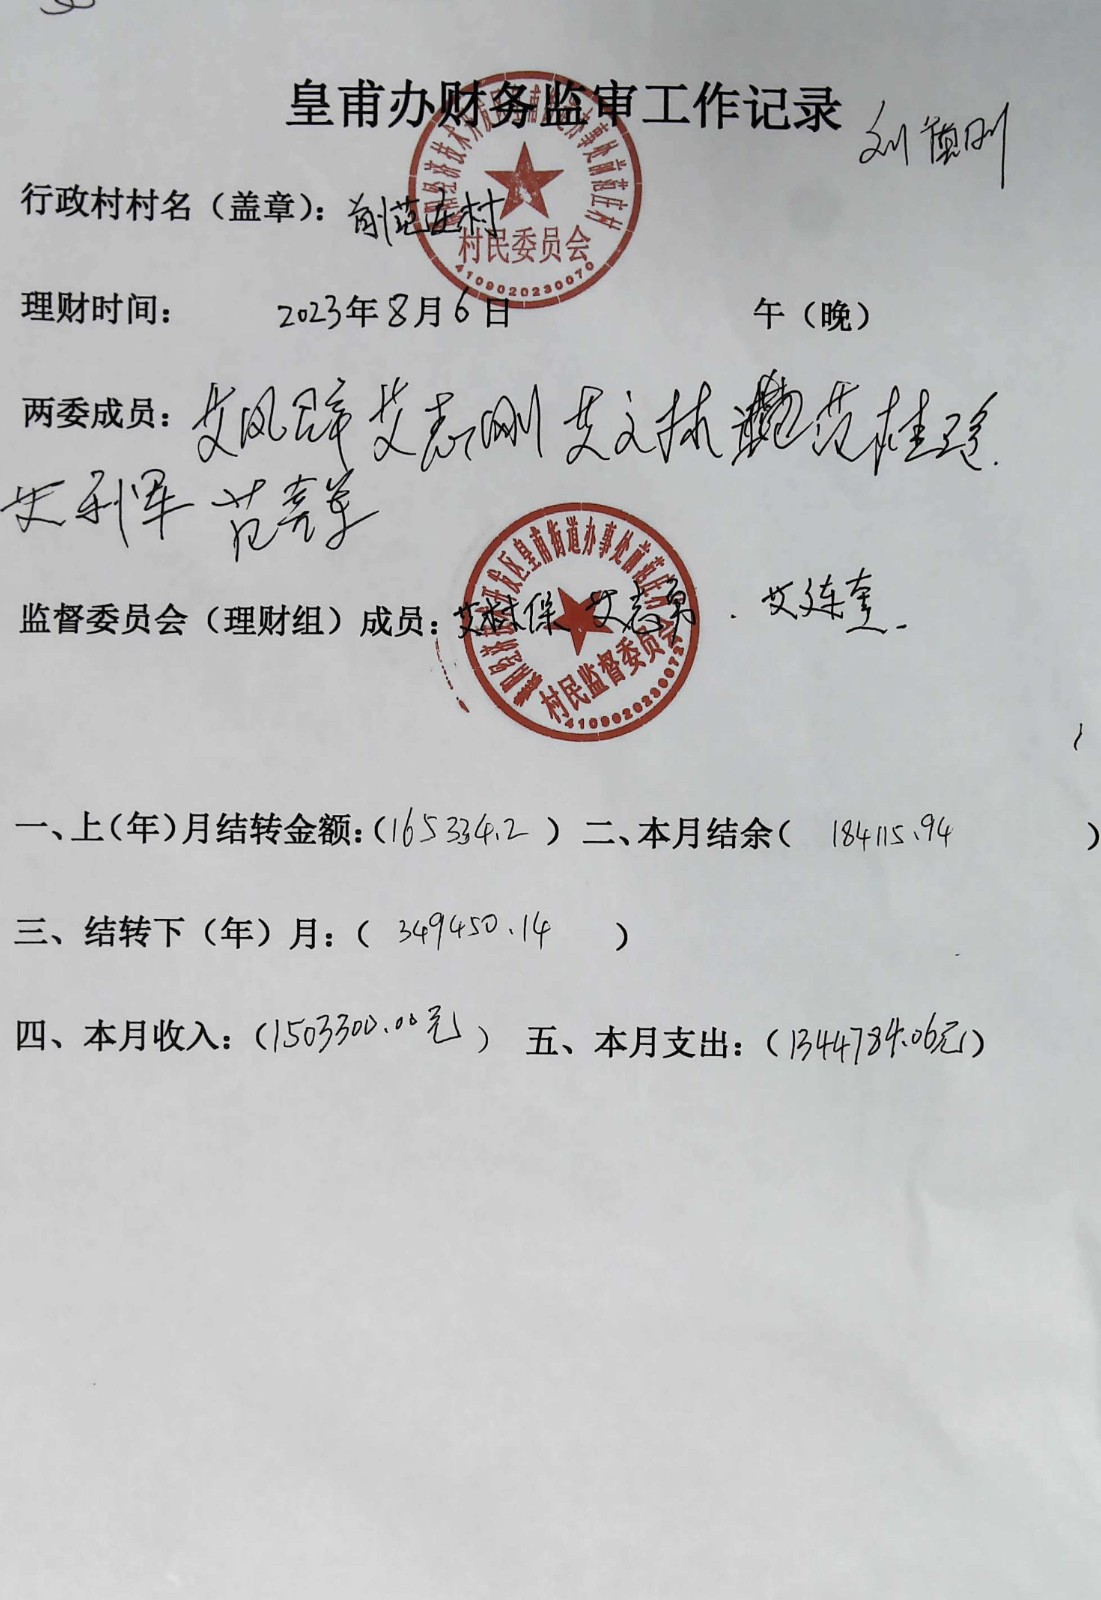 皇甫办财务监审工作记录
行政村村名（盖章）：前范庄村
村民委员会
4109020230070
理财时间： 2023年8月6日 午（晚）
两委成员： 艾志刚 艾文林
艾利军
监督委员会（理财组）成员：艾林保 艾志勇 . 艾东奎.
开发区皇甫街道办事处前范庄村
村民监督委员会
一、上（年）月结转金额：（165334.2 ） 二、本月结余（ 184115.94 ）
三、结转下（年）月：（ 349450.14 ）
四、本月收入：（1503300.00元 ） 五、本月支出：（1344784.06元）